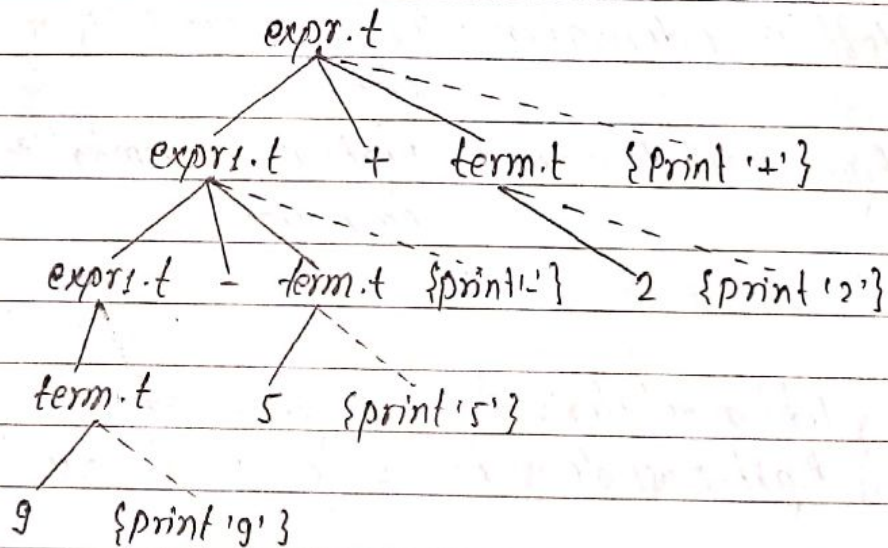 expr.t
expr1.t + term.t {print '+'}
expr1.t - term.t {print '-'} 2 {print '2'}
term.t 5 {print '5'}
9 {print '9'}